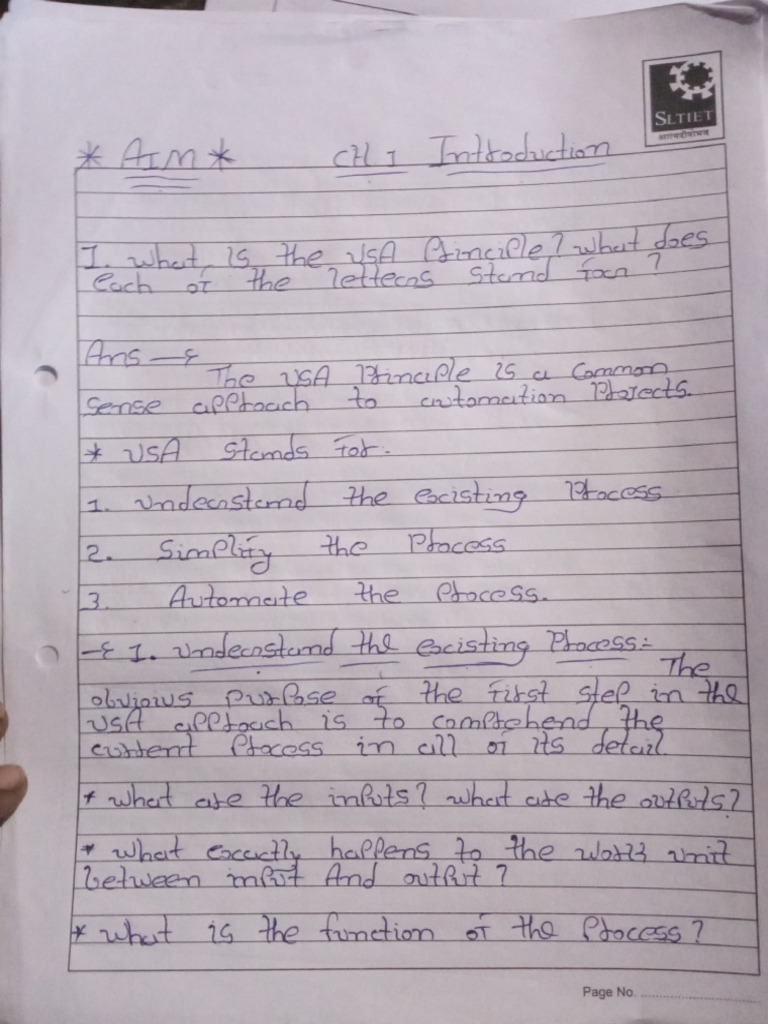 SLTIET
* AIM * CH 1 Introduction
1. what is the USA Principle? what does
each of the letters stand for ?
Ans →
The USA Principle is a common
sense approach to automation Projects.
* USA stands for.
1. Understand the existing Process
2. Simplify the Process
3. Automate the Process.
→ 1. Understand the existing Process:-
The
obvioius purpose of the first step in the
USA approach is to comprehend the
current Process in all of its detail.
* what are the inputs? what are the outputs?
* what exactly happens to the work unit
between input And output ?
* what is the function of the Process ?
Page No.